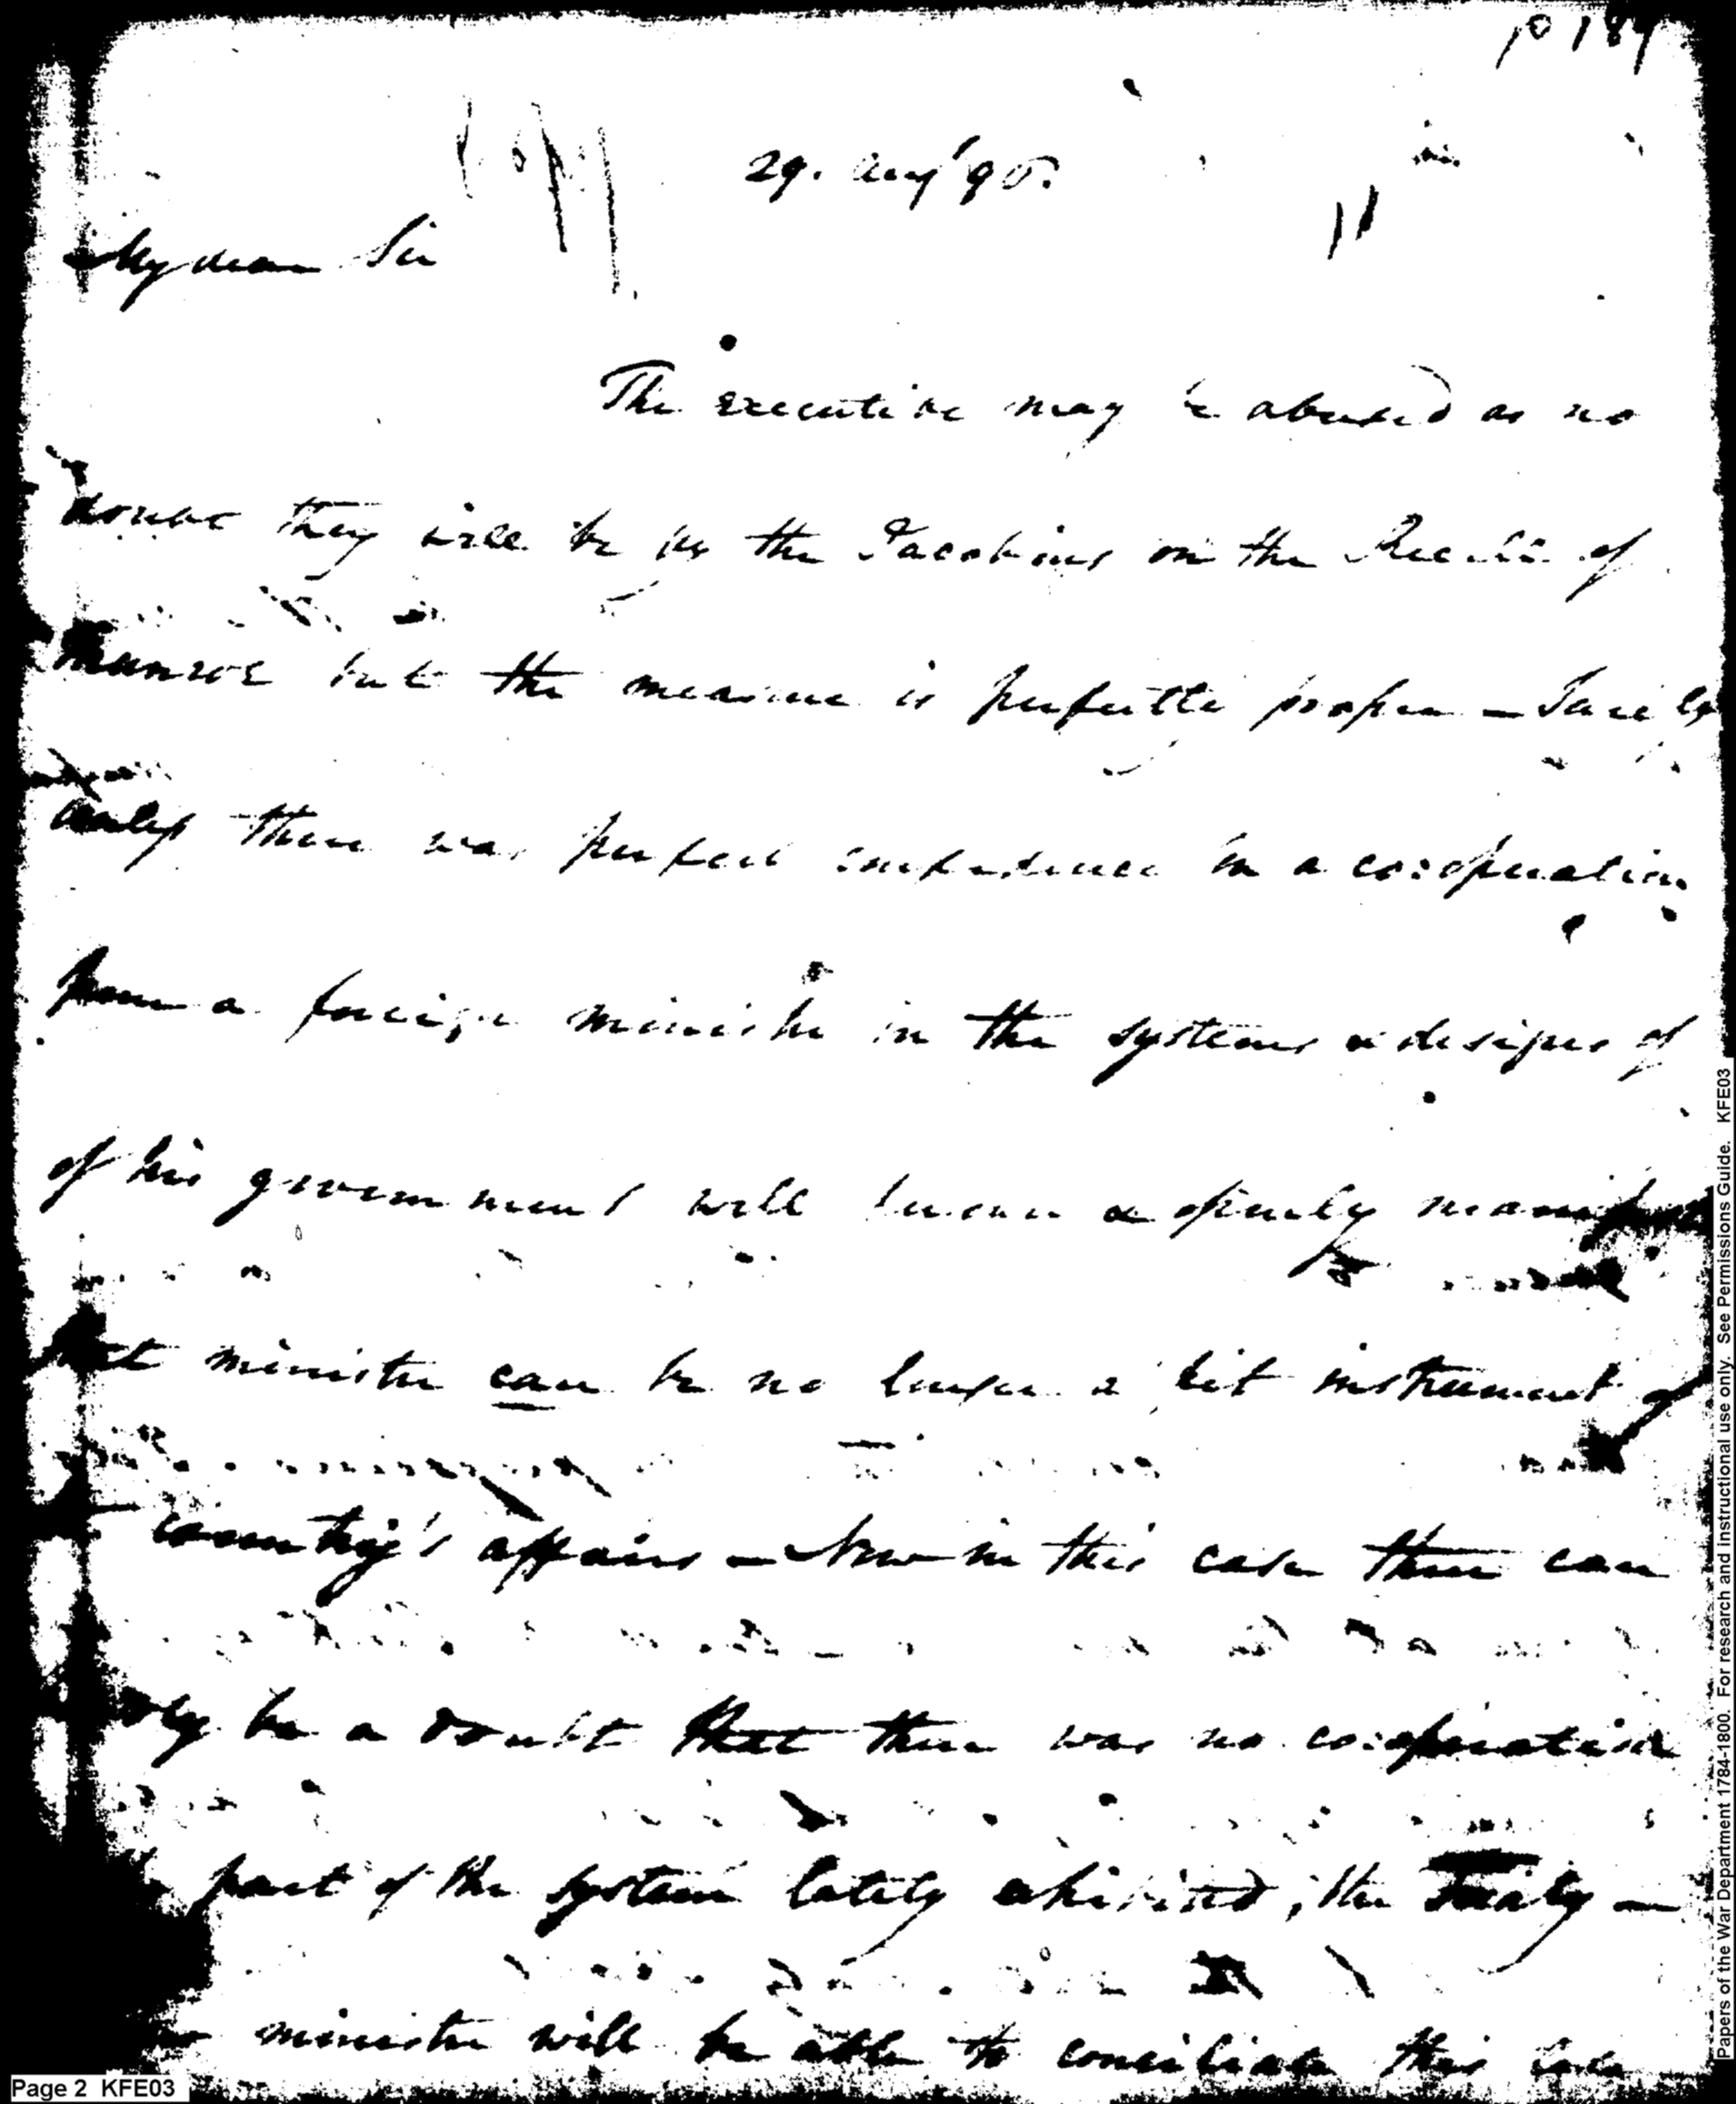 p 184
Copy
29. Aug' 96.
My dear Sir
The executive may be abused as no
doubt they will be by the Jacobins on the Recall of
Munroe but the measure is perfectly proper –
there was perfect confidence in a co:operation
from a foreign minister in the systems & designs of
of his government will become openly
minister can be no longer a fit instrument of
country's affairs – Now in this case there can
be a doubt that there was no co:operation
part of the system lately exhibited, the Treaty –
minister will be able to conciliate this
Page 2 KFE03
Papers of the War Department 1784-1800. For research and instructional use only. See Permissions Guide. KFE03